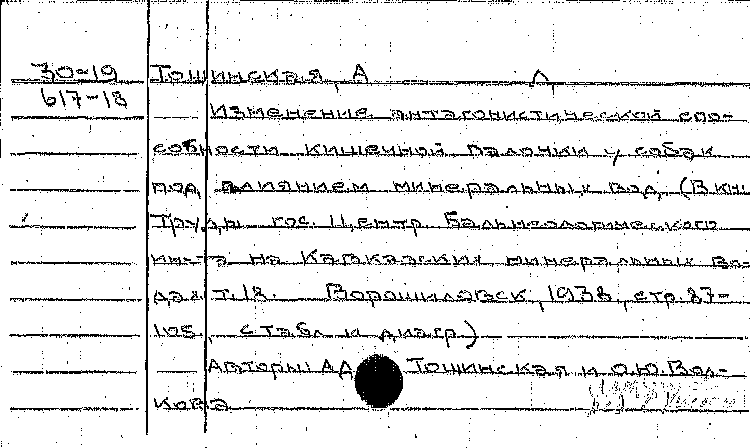 30-19 Тошинская, А Л
617-18 Изменение антагонистической спо-
собности кишечной палочки у собак
под влиянием минеральных вод, (В кн:
Труды гос. Центр. Бальнеологического
ин-та на Кавказских минеральных Во-
дах т.18. Ворошиловск, 1938, стр.87-
105, с табл и диагр)
Авторы: АД Тошинская и О.Ю. Вол-
кова